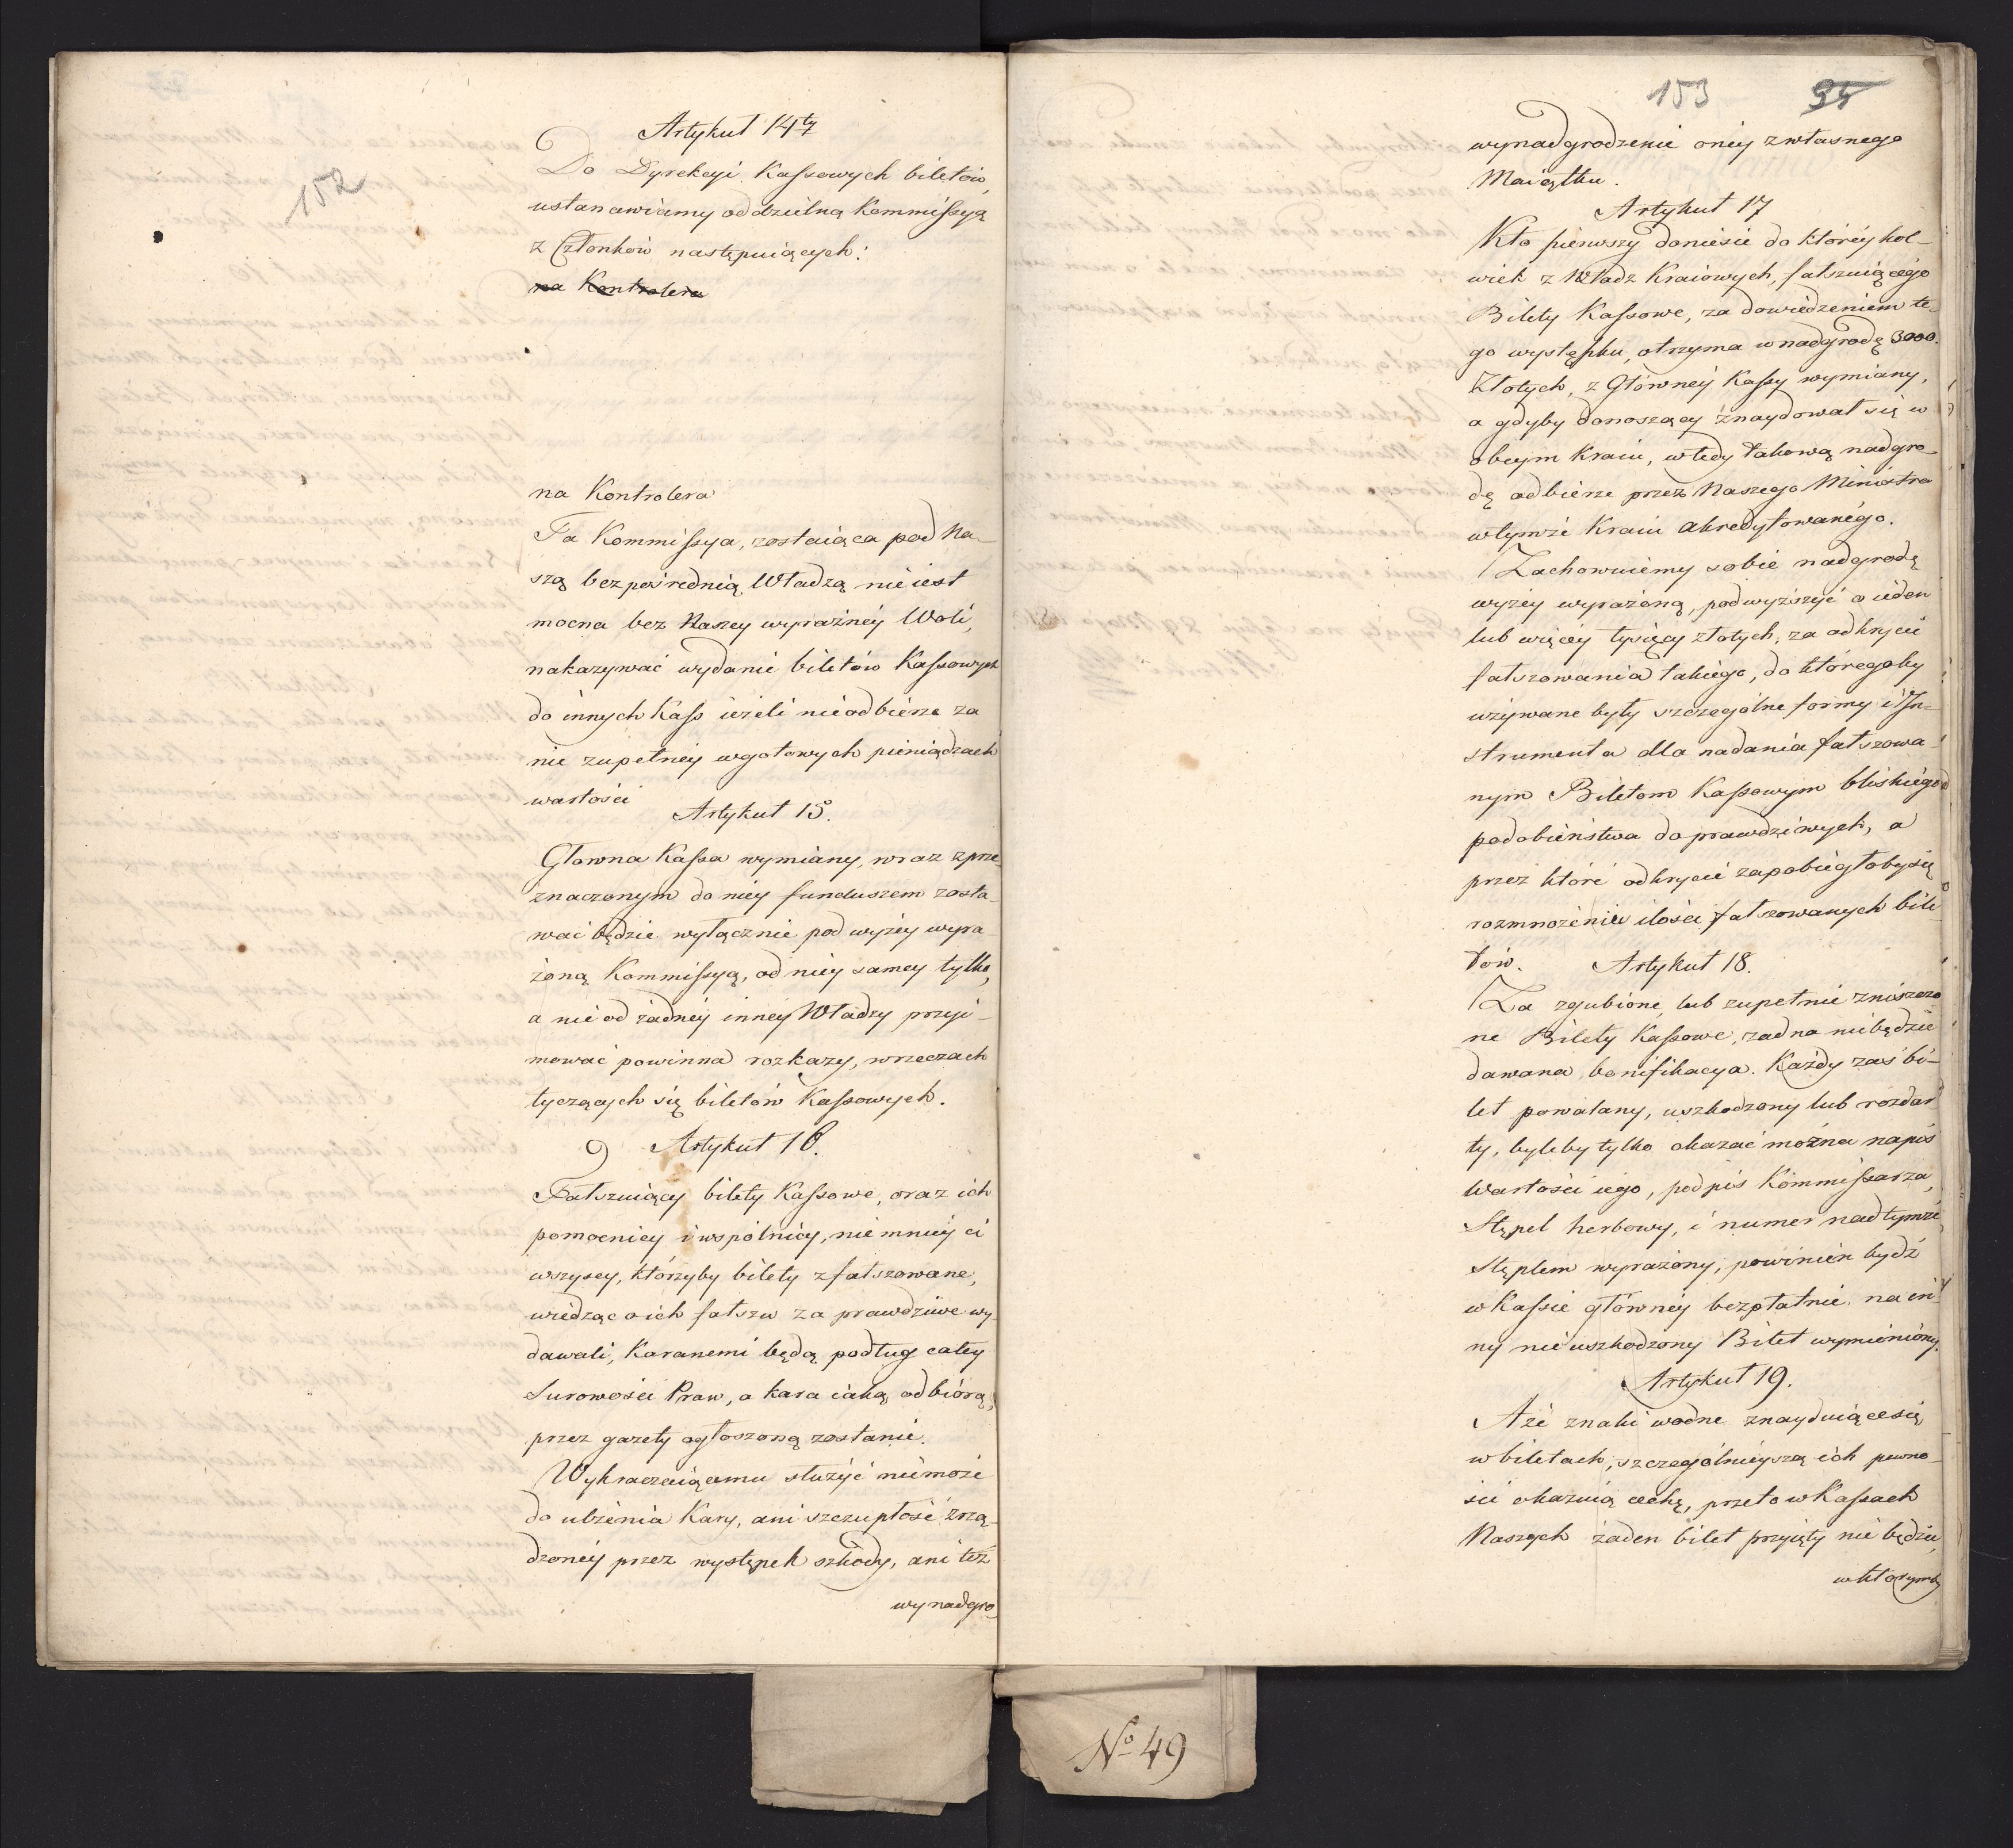 152
Artykuł 14ty
Do Dyrekcyi Kassowych biletów,
ustanawiamy oddzielną Kommissyą
z Członków następuiących:
na Kontrolera
na Kontrolera
Ta Kommissya, zostaiąca pod Na-
szą bezpośrednią Władzą nie iest
mocna bez Naszey wyraźnéy Woli,
nakazywać wydanie biletów Kassowych
do innych Kass ieżeli nieodbierze za
nie zupełney wgotowych pieniądzach
wartości
Artykuł 15.
Głowna Kassa wymiany, wraz zprze-
znaczonym do niey funduszem zosta-
wać będzie wyłącznie pod wyżey wyra-
żoną Kommissyą, od niey samey tylko,
a nie od żadnéy innéy Władzy przyi-
mować powinna rozkazy, wrzeczach
tyczących się biletów Kassowych.
Artykuł 16.
Fałszuiący bilety Kassowe, oraz ich
pomocnicy i wspólnicy, niemniey ci
wszyscy, którzyby bilety zfałszowane,
wiedząc o ich fałszu za prawdziwe wy-
dawali, Karanemi będą podług całey
Surowości Praw, a kara iaką odbiorą,
przez gazety ogłoszoną zostanie.
Wykraczaiącemu służyć niemoże
do ulżenia Kary, ani szczupłość zrzą-
dzonéy przez występek szkody, ani też
wynadgro-
153 95
wynadgrodzenie oney zwłasnego
Maiątku.
Artykuł 17
Kto pierwszy doniesie do któréykol-
wiek z Władz Kraiowych, fałszuiącego
Bilety Kassowe, za dowiedzeniem te-
go występku, otrzyma wnadgrodę 3000.
Złotych, z Głównéy Kassy wymiany,
a gdyby donoszący znaydował się w
obcym Kraiu, wtedy takową nadgro-
dę odbierze przez Naszego Ministra
wtymże Kraiu akredytowanégo.
Zachowuiemy sobie nadgrodę
wyżey wyrażoną, podwyższyć o ieden
lub więcéy tysięcy złotych, za odkrycie
fałszowania takiego, do któregoby
używane były szczególne formy i In-
strumenta dla nadania fałszowa-
nym Biletom Kassowym bliskiégo
podobieństwa do prawdziwych, a
przez któré odkrycie zapobiegłobysię
rozmnożeniu ilości fałszowanych bile-
tów. Artykuł 18.
Za zgubione, lub zupełnie zniszczo-
ne Bilety Kassowe, żadna niebędzie
dawana bonifikacya. Każdy zaś bi-
let powalany, uszkodzony lub rozdar-
ty, byleby tylko okazać można napis
Wartości iego, podpis Kommissarza,
Stępel herbowy, i numer nad tymże
Stęplem wyrażony, powinien bydź
w Kassie głównéy bezpłatnie na in-
ny nieuszkodzony Bilet wymieniony.
Artykuł 19.
A że znaki wodne znayduiące się
wbiletach, szczególnieyszą ich pewno-
ści okazuią cechę, przeto w Kassach
Naszych żaden bilet przyięty nie będzie,
wktórymby
No 49